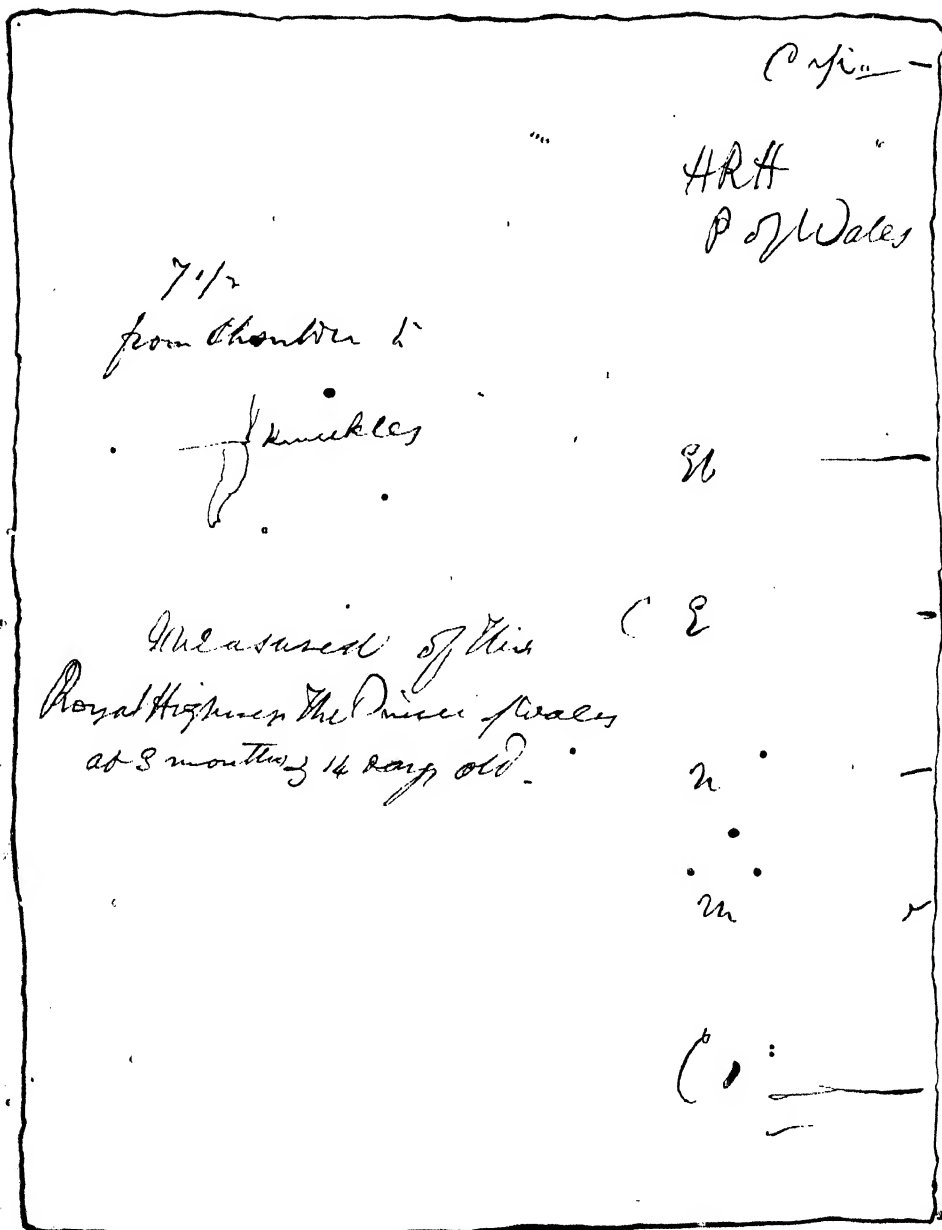 HRH
P of Wales
7 1/2
from Shoulder to
knuckles
El
C E
Measured of His
Royal Highness The Prince of Wales
at 3 months & 14 days old.
n
m